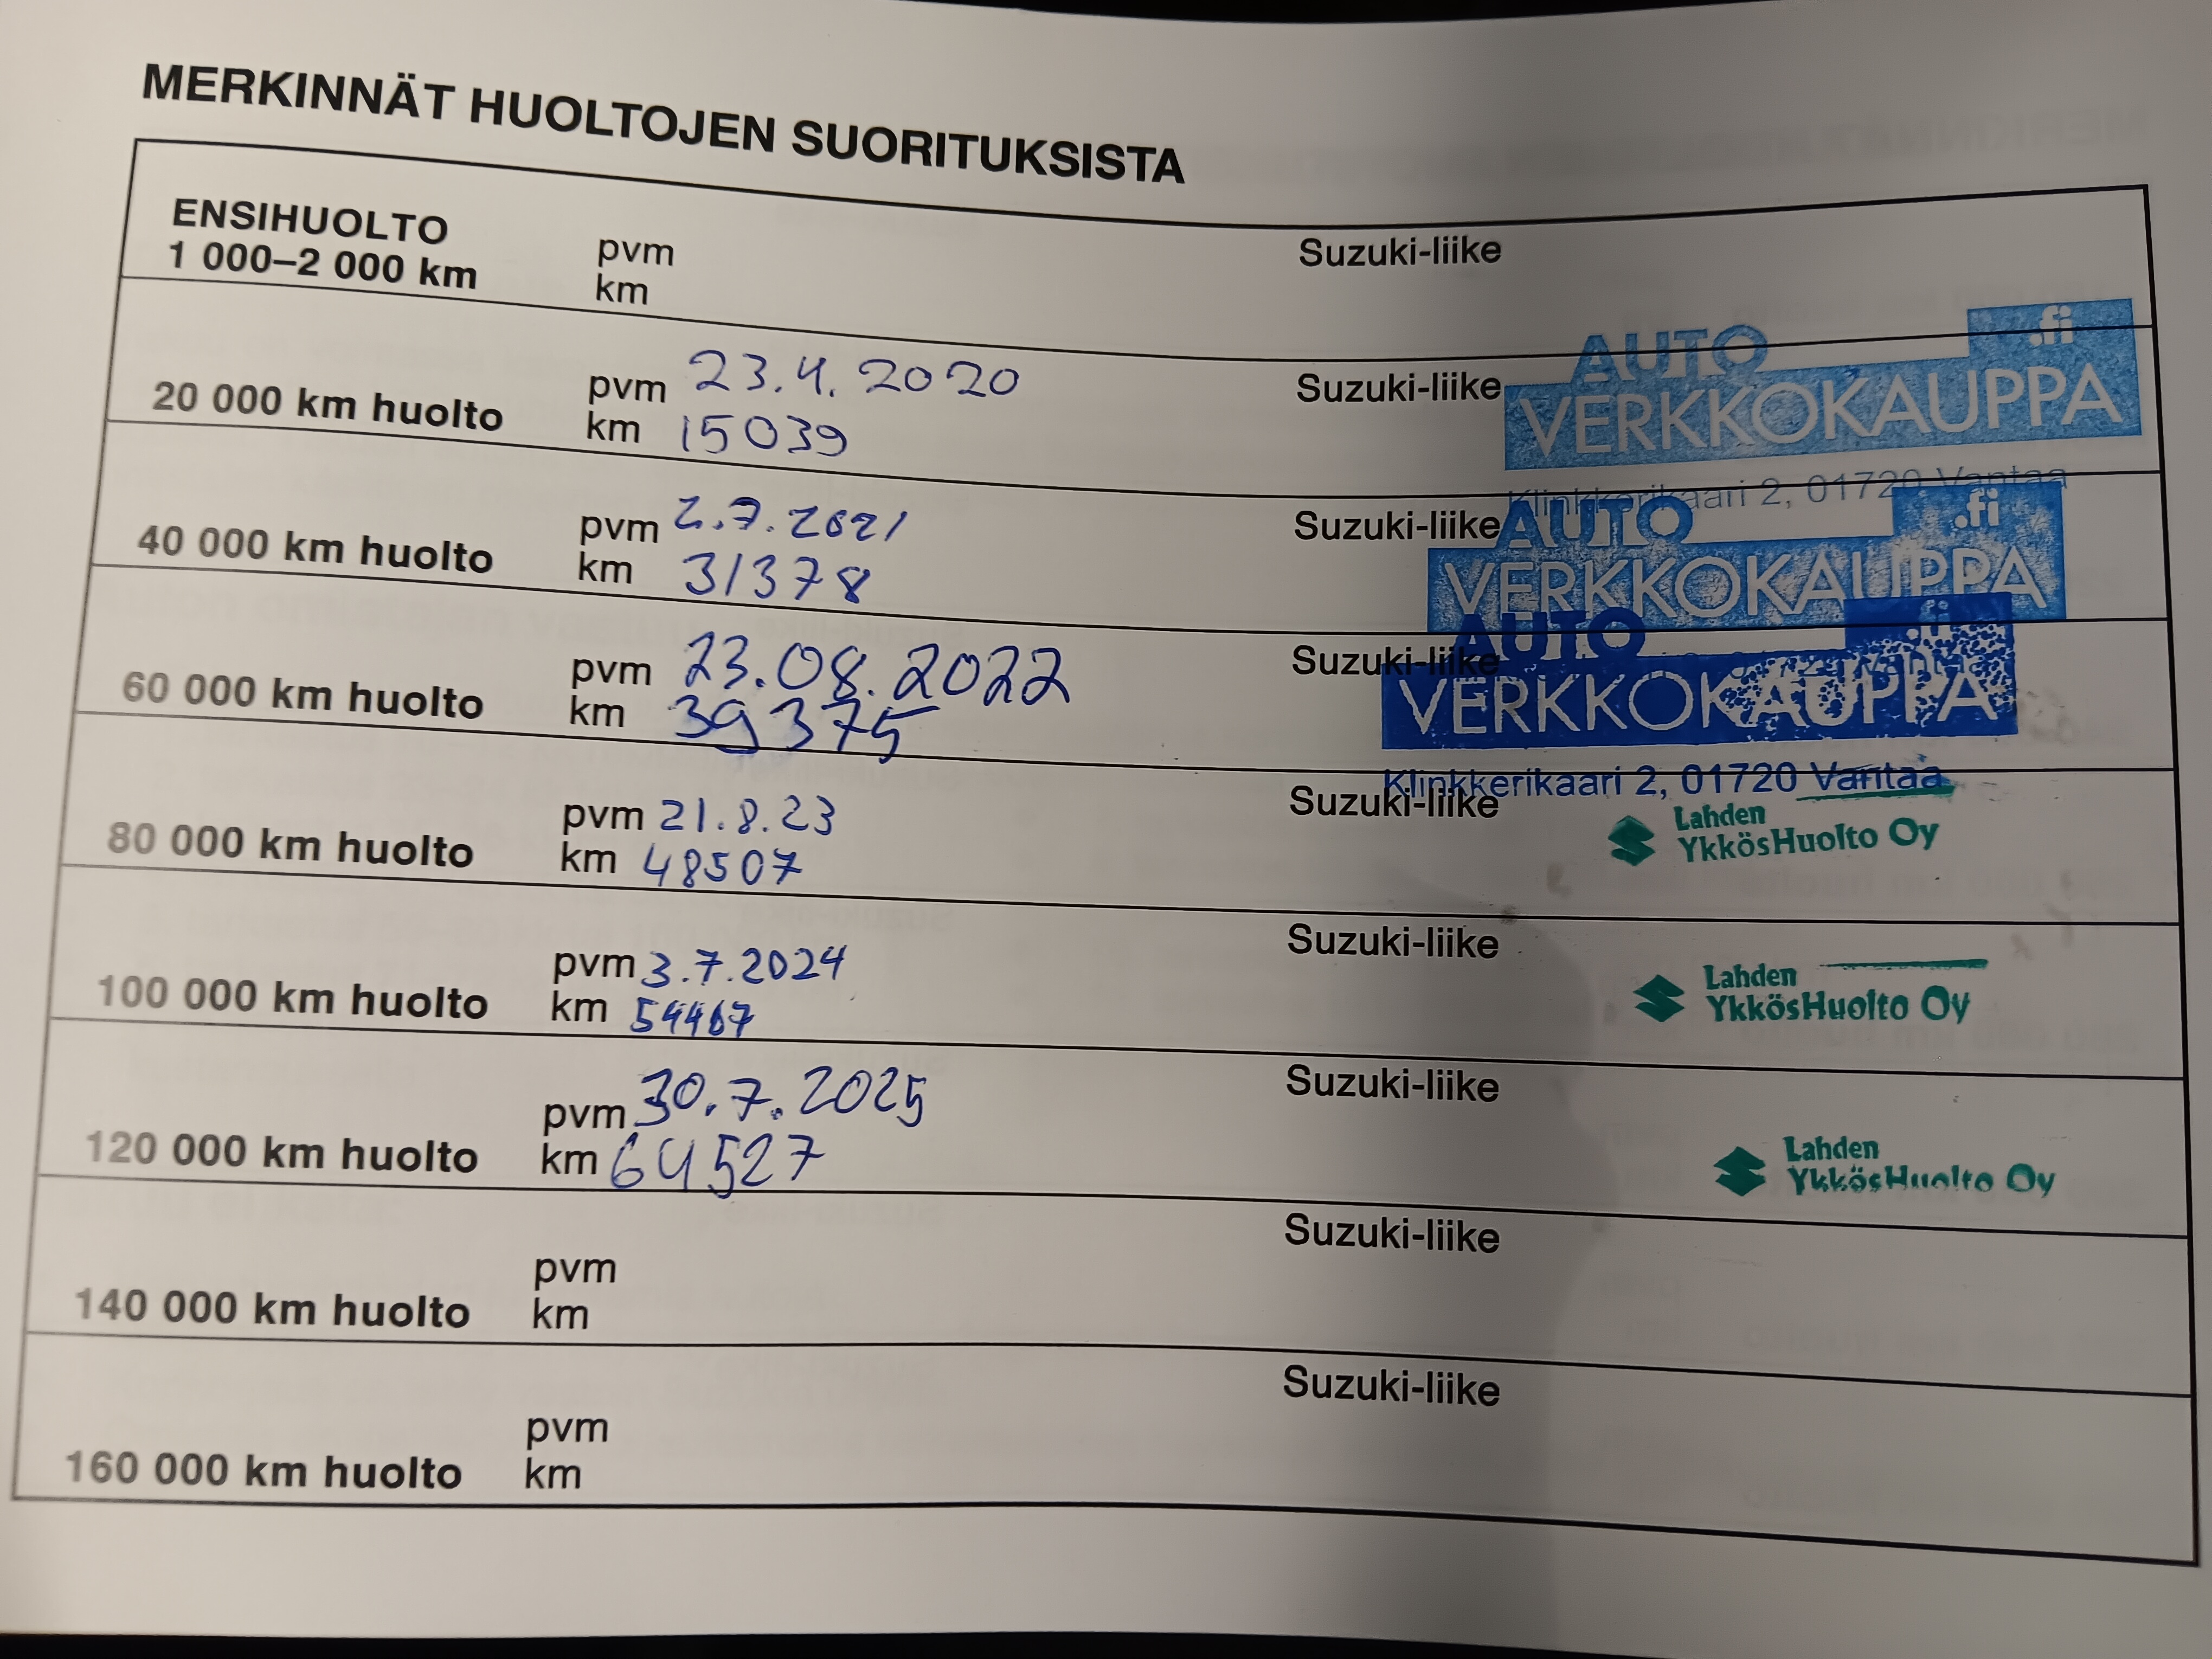 MERKINNÄT HUOLTOJEN SUORITUKSISTA
ENSIHUOLTO
1 000–2 000 km
pvm
km
Suzuki-liike
20 000 km huolto
pvm 23.4.2020
km 15039
Suzuki-liike
AUTO
VERKKOKAUPPA
.fi
Klinkkerikaari 2, 01720 Vantaa
40 000 km huolto
pvm 2.7.2021
km 31378
Suzuki-liike
AUTO
VERKKOKAUPPA
.fi
60 000 km huolto
pvm 23.08.2022
km 39375
Suzuki-liike
AUTO
VERKKOKAUPPA
.fi
Klinkkerikaari 2, 01720 Vantaa
80 000 km huolto
pvm 21.8.23
km 48507
Suzuki-liike
Lahden
YkkösHuolto Oy
100 000 km huolto
pvm 3.7.2024
km 54467
Suzuki-liike
Lahden
YkkösHuolto Oy
120 000 km huolto
pvm 30.7.2025
km 64527
Suzuki-liike
Lahden
YkkösHuolto Oy
140 000 km huolto
pvm
km
Suzuki-liike
160 000 km huolto
pvm
km
Suzuki-liike